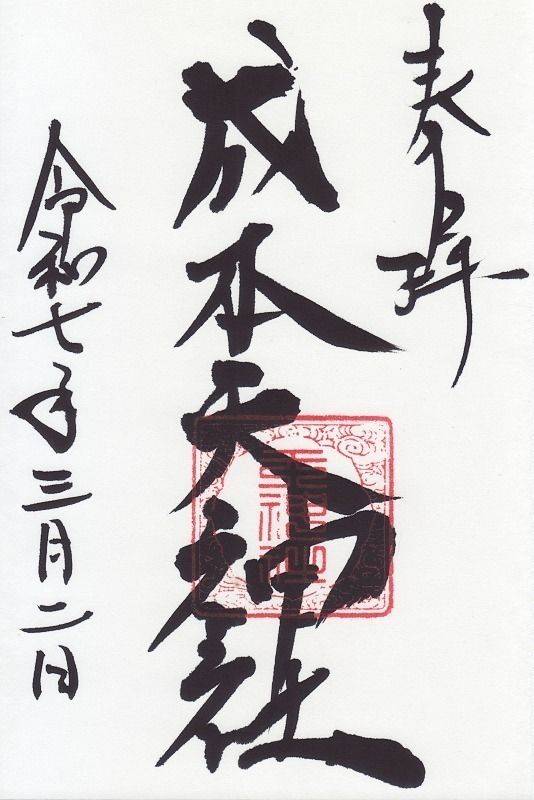 奉拝
成本天神社
令和七年三月二日